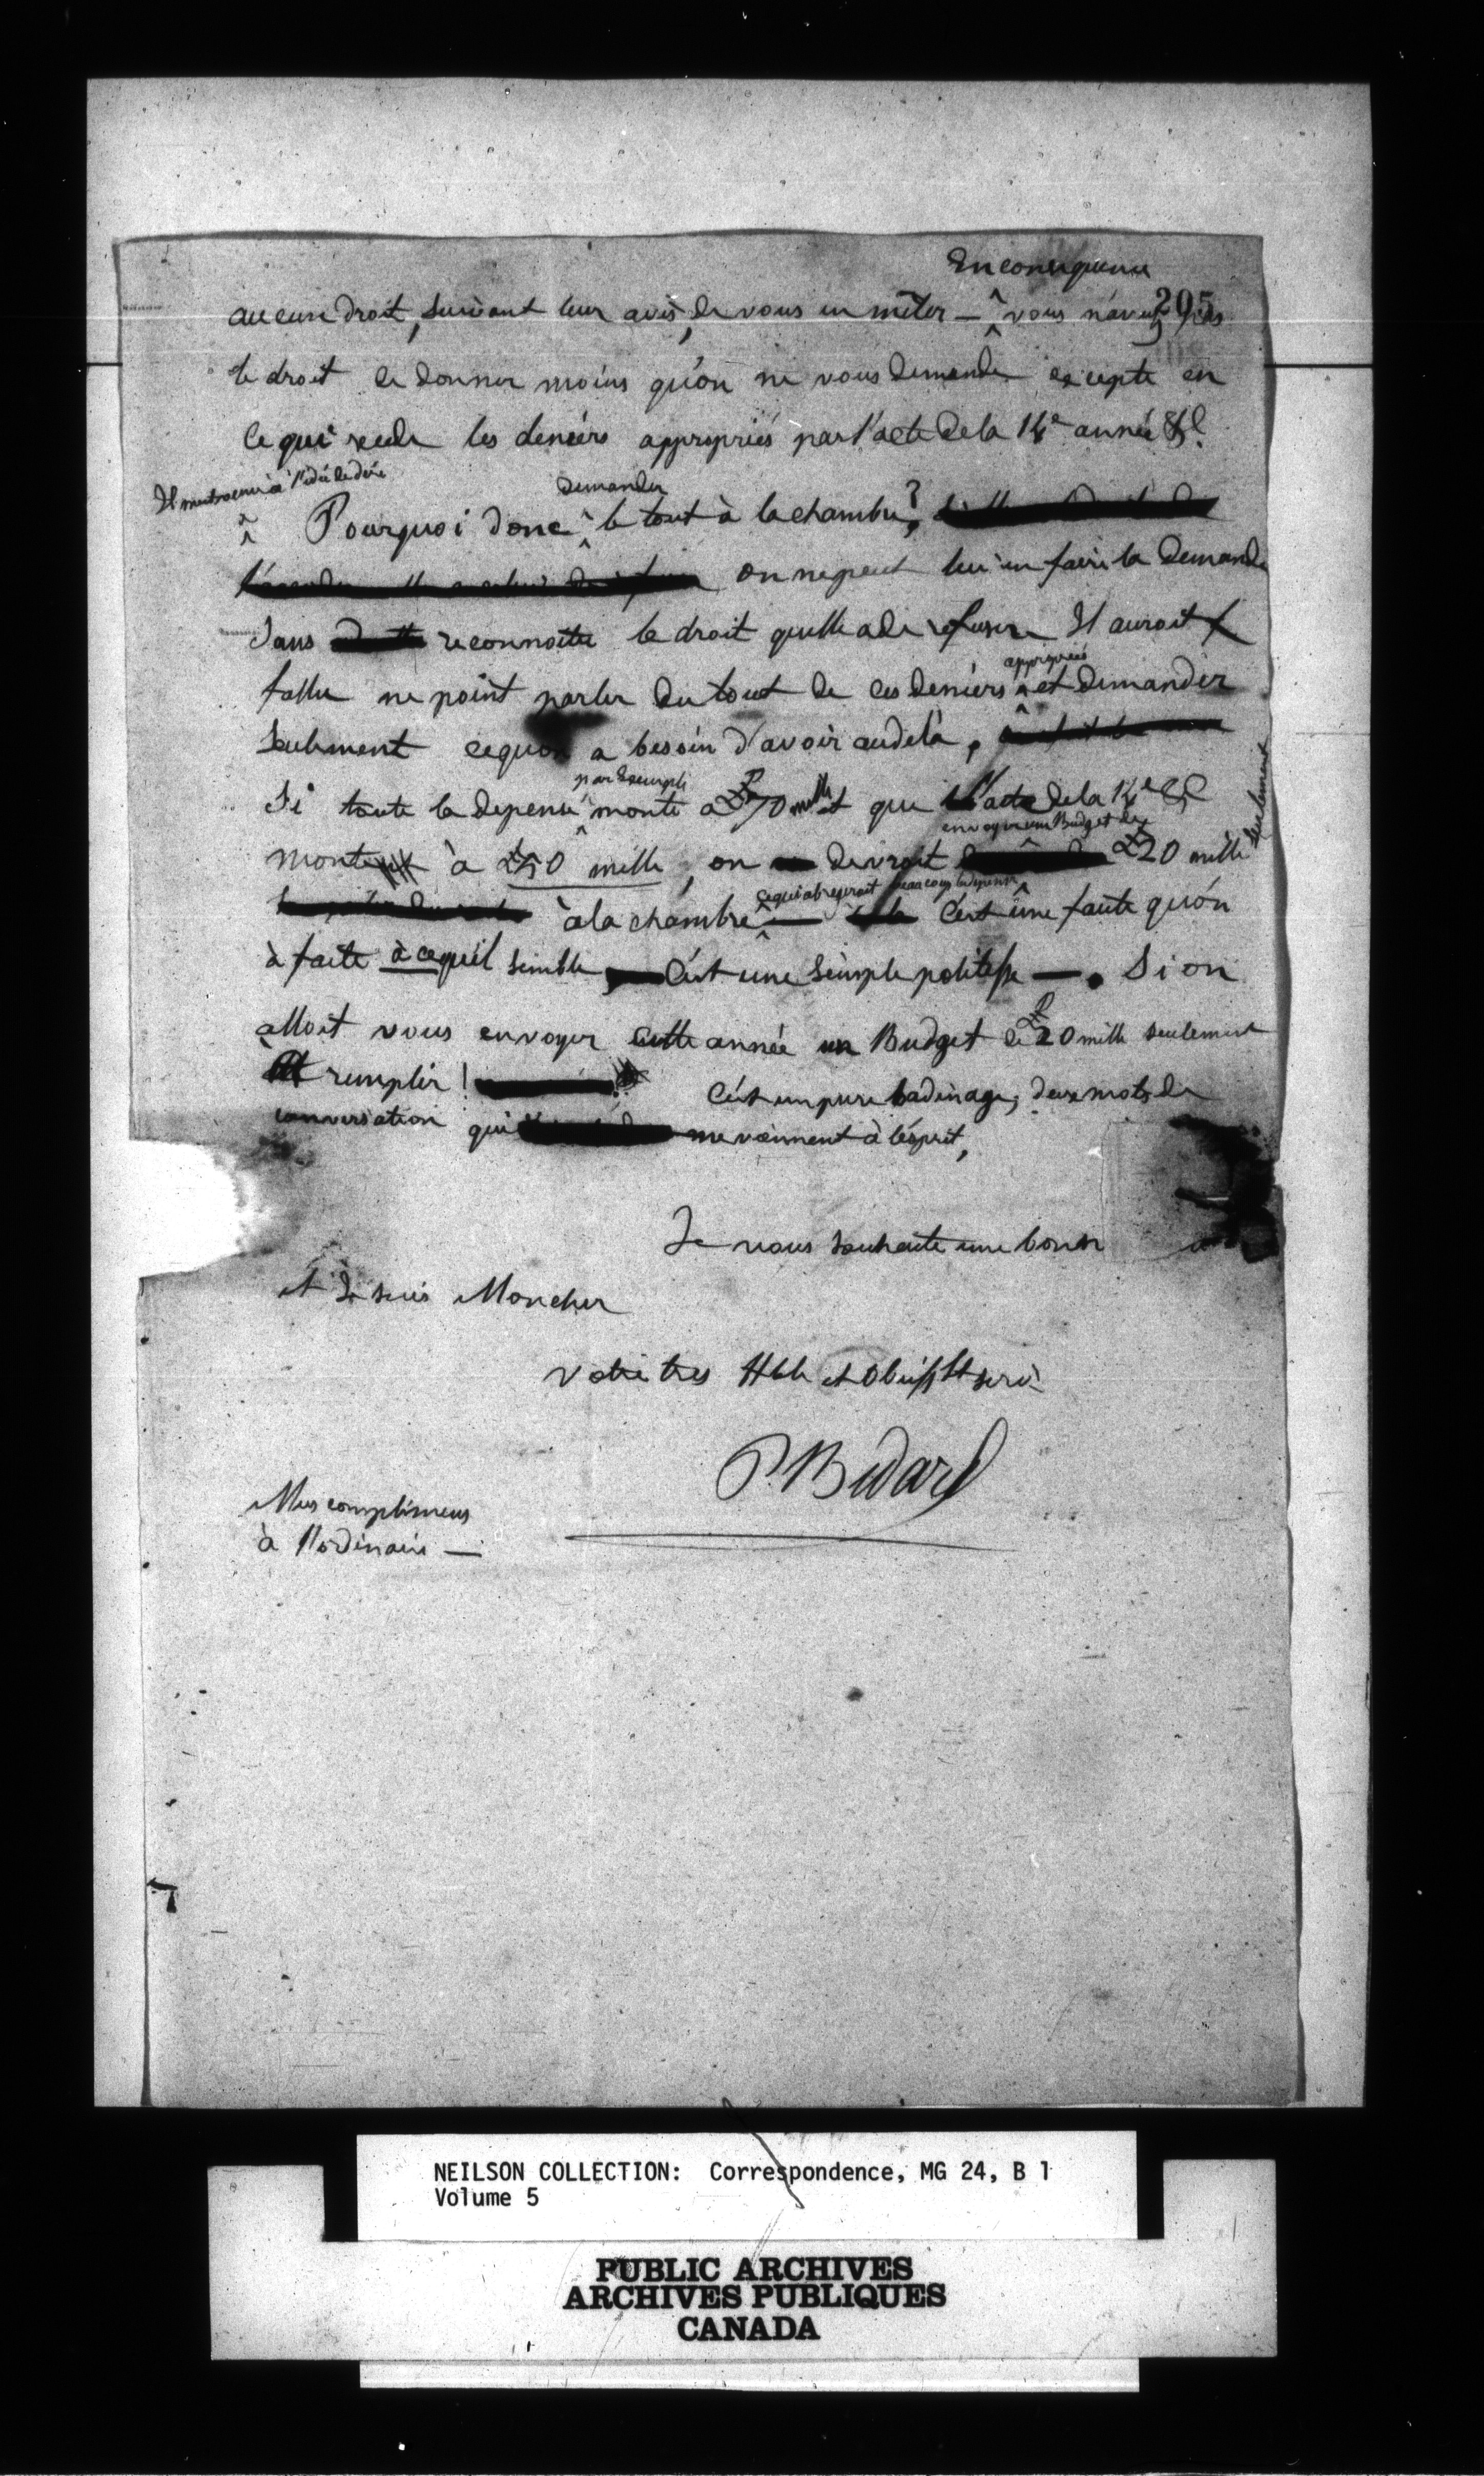 En consequence
205
aucun droit, suivant leur avis, de vous en mêler — ^ vous n'avez pas
le droit de donner moins qu'on ne vous demande excepté en
ce qui excede les deniers appropriés par l'acte de la 14e année &c.
Il me vient à l'idée de dire
demander
Pourquoi donc ^ le tout à la chambre?
on ne peut lui en faire la demande
sans reconnoitre le droit qu'elle a de refuser Il auroit
appropriés
fallu ne point parler du tout de ces deniers ^ et demander
seulement ce qu'on a besoin d'avoir au dela,
par Exemple
Si toute la depense ^ monte a £70 mille et que l'acte de la 14e &c
envoyer un Budget de
seulement
monte à £50 mille, on devroit £20 mille
ce qui abregeroit beaucoup la depense
à la chambre ^ — C'est une faute qu'on
à faite à ce qu'il semble, C'est une simple politesse —. Si on
alloit vous envoyer cette année un Budget de £20 mille seulement
à remplir! C'est un pure badinage, deux mots de
conversation qui me viennent à l'ésprit,
Je vous souhaite une bonne
et Je suis Mon cher
votre tres Hble et Obéisst serv
P. Bedard
Mes complimens
à l'ordinaire —
NEILSON COLLECTION: Correspondence, MG 24, B 1
Volume 5
PUBLIC ARCHIVES
ARCHIVES PUBLIQUES
CANADA